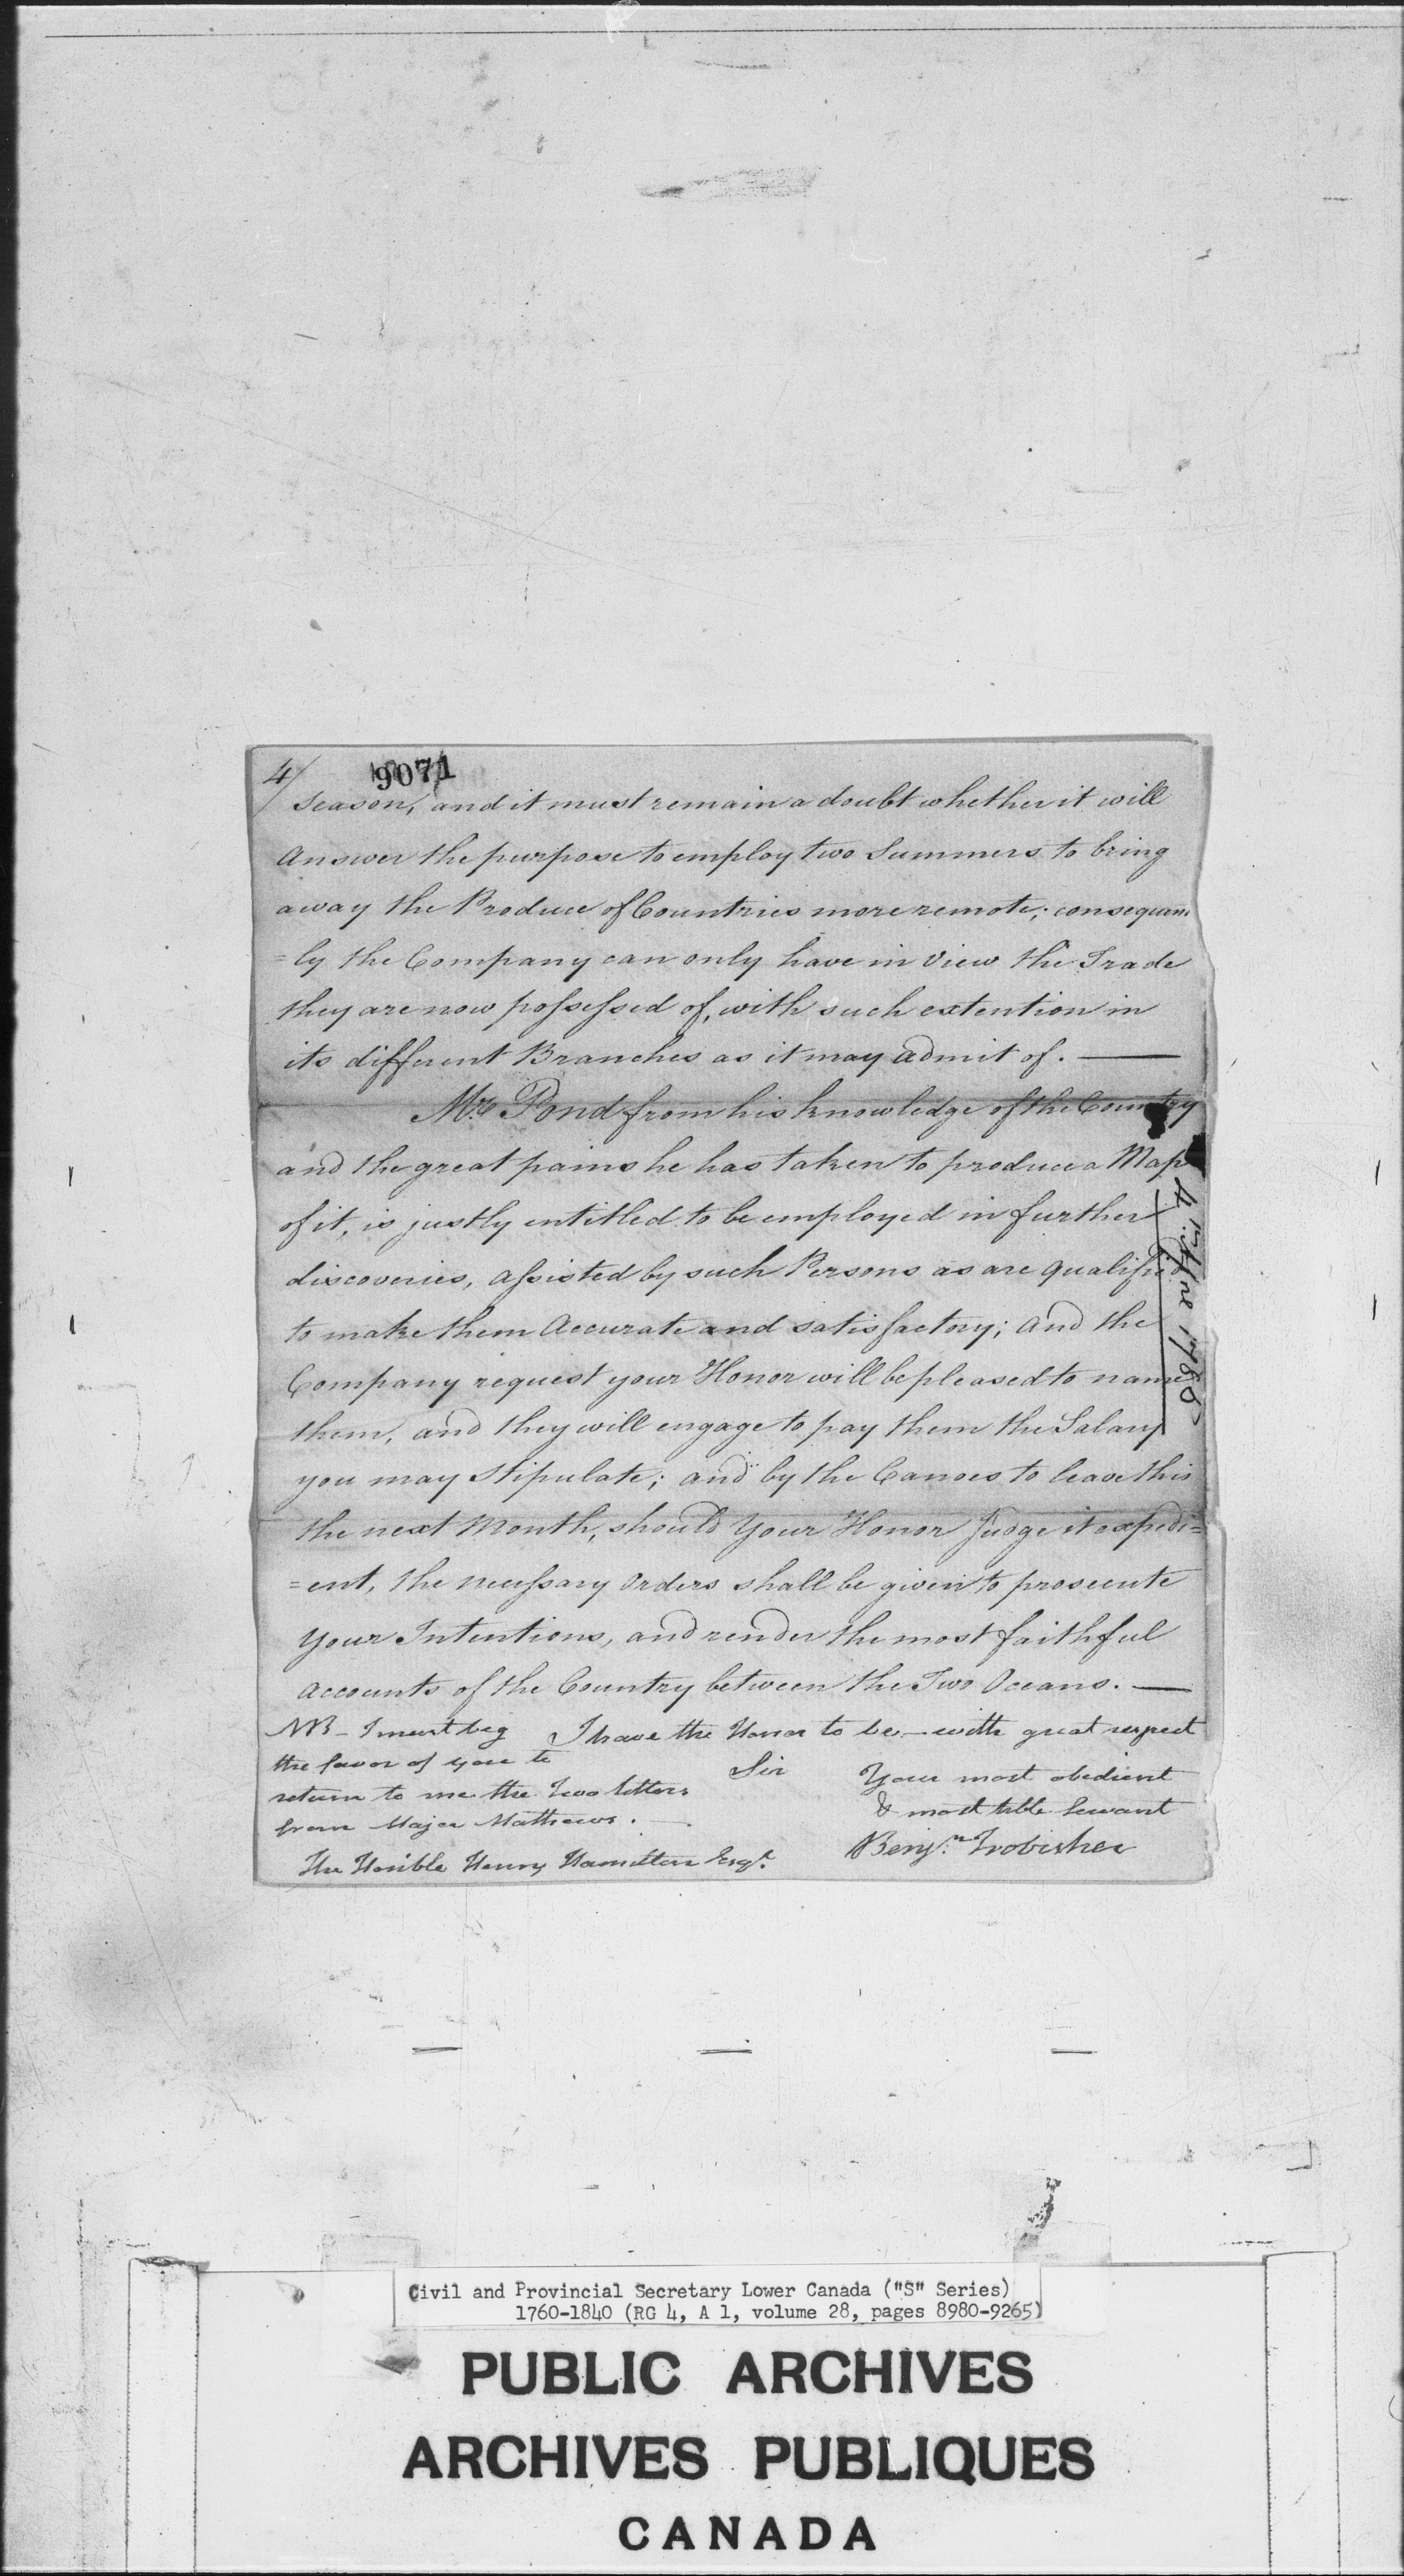 4/ 9071
Season, and it must remain a doubt whether it will
Answer the purpose to employ two Summers to bring
away the Produce of Countries more remote; consequen
=ly the Company can only have in view the Trade
they are now possessed of, with such extention in
its different Branches as it may admit of. —
Mr. Pond from his knowledge of the Country
and the great pains he has taken to produce a Map
of it, is justly entitled to be employed in further
discoveries, assisted by such Persons as are qualified
to make them Accurate and satisfactory; and the
Company request your Honor will be pleased to name
them, and they will engage to pay them the Salary
you may stipulate; and by the Canoes to leave this
the next Month, should Your Honor Judge it expedi=
=ent, the necessary Orders shall be given to prosecute
Your Intentions, and render the most faithful
accounts of the Country between the Two Oceans. —
I have the Honor to be — with great respect
Sir
Your most obedient
& most hble Servant
Benjn. Frobisher
NB – I must beg
the favor of you to
return to me the Two letters
from Major Mathews. —
The Honible Henry Hamilton Esqr.
1785
Civil and Provincial Secretary Lower Canada ("S" Series)
1760-1840 (RG 4, A 1, volume 28, pages 8980-9265)
PUBLIC ARCHIVES
ARCHIVES PUBLIQUES
CANADA